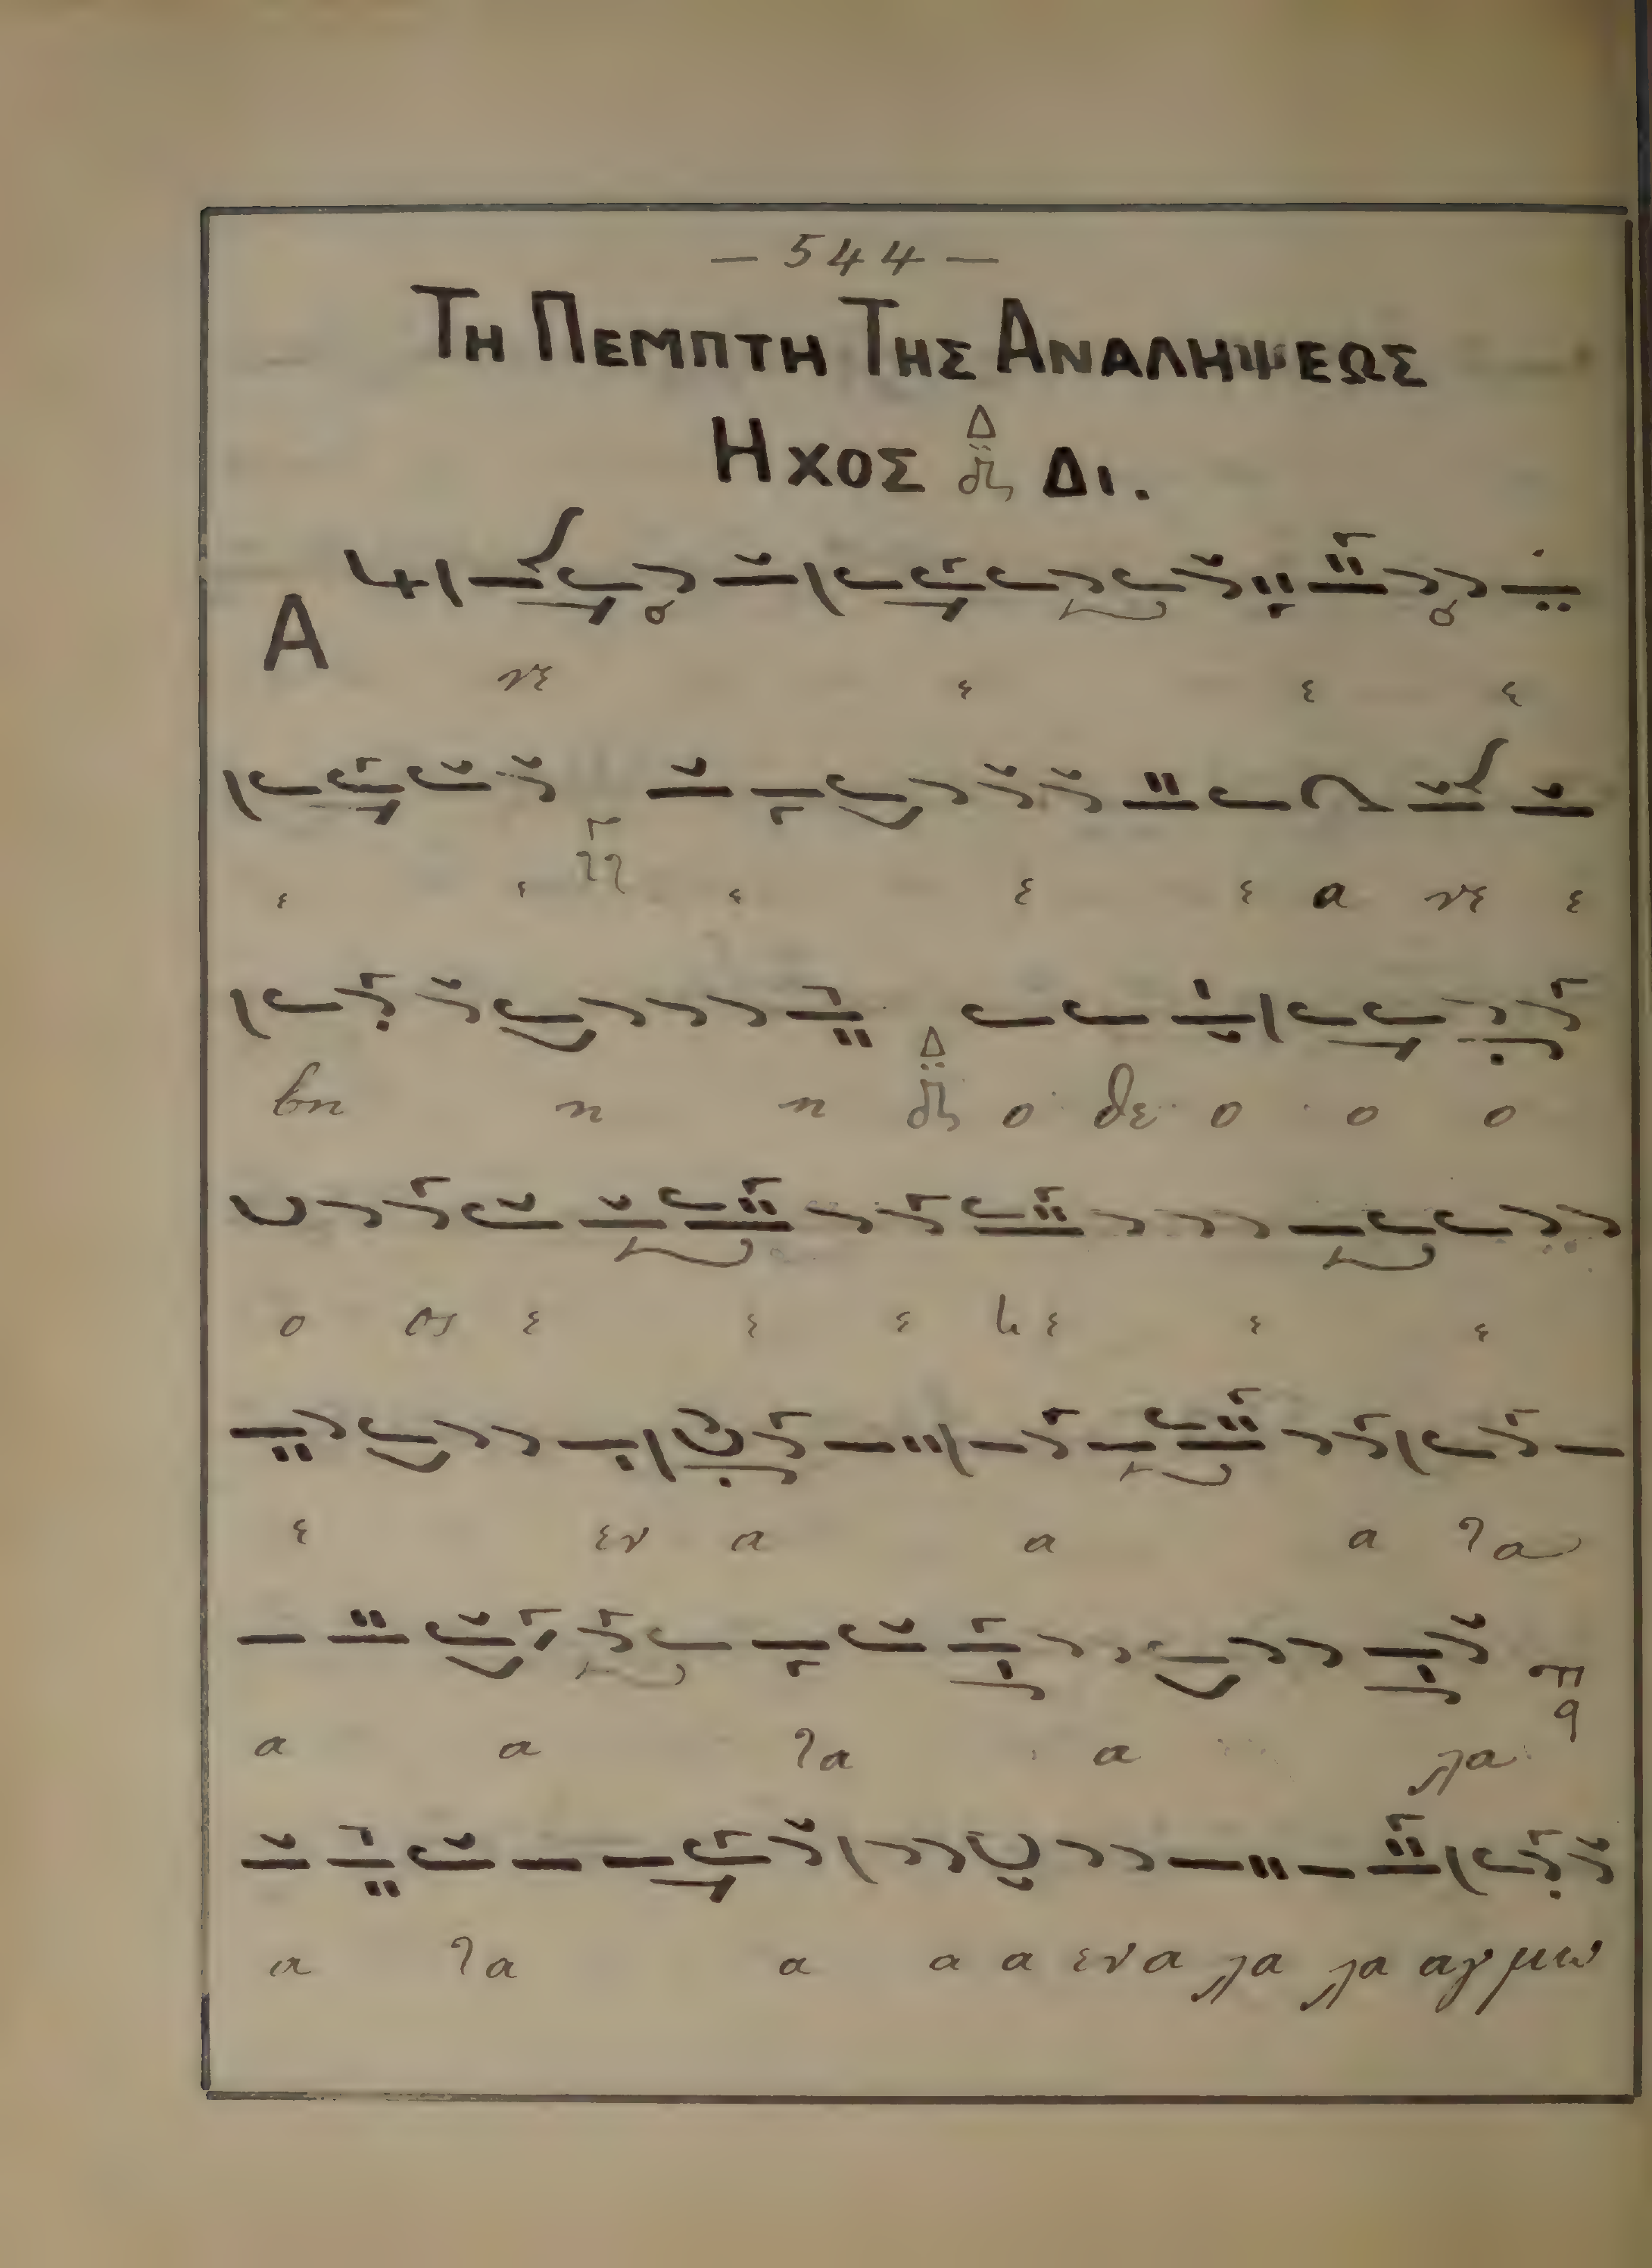 — 544 —
ΤΗ ΠΕΜΠΤΗ ΤΗΣ ΑΝΑΛΗΨΕΩΣ
ΗΧΟΣ Δ ΔΙ.
Α νε ε ε ε
ε ε ε ε ε α νε ε
βη η η Δ ο θε ο ο ο
ο ος ε ε ε ε ε ε
ε εν α α α τα
α α τα α λα
α τα α α α εν α λα λα αγ μω